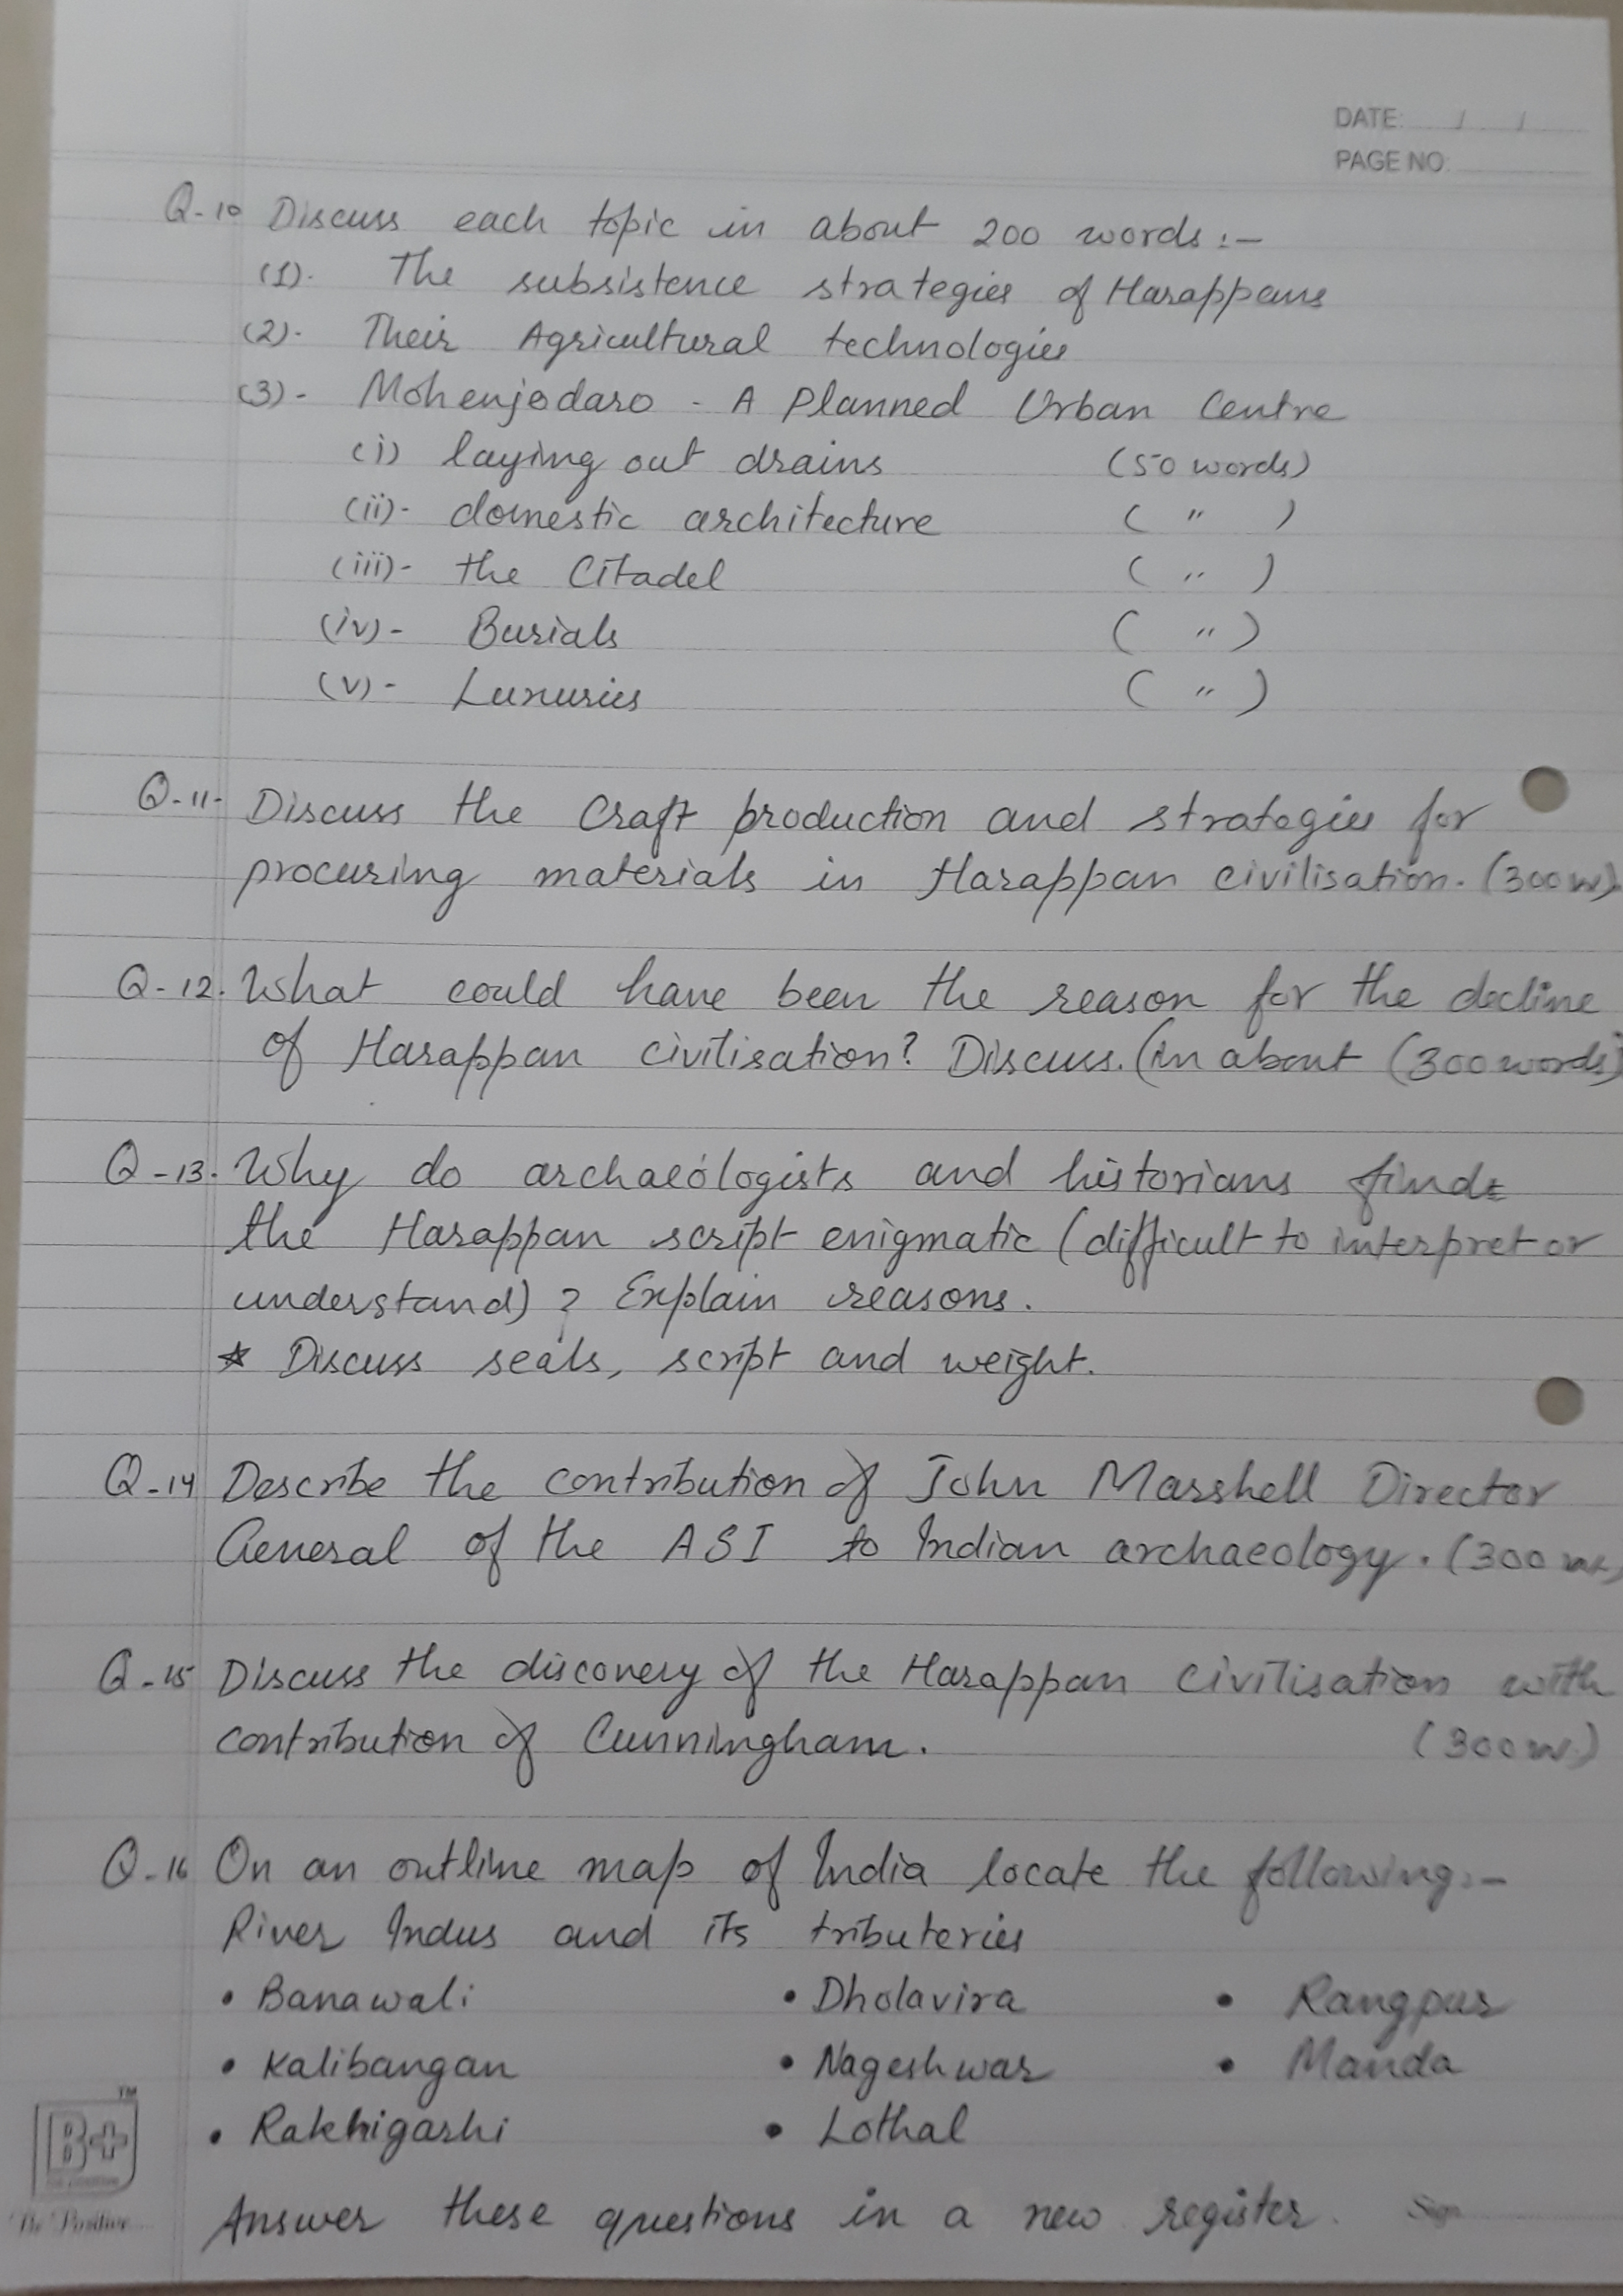 DATE: / /
PAGE NO.
Q-10 Discuss each topic in about 200 words:-
(1). The subsistence strategies of Harappans
(2). Their Agricultural technologies
(3)- Mohenjodaro - A Planned Urban Centre
(i) laying out drains (50 words)
(ii)- domestic architecture ( " )
(iii)- the Citadel ( " )
(iv)- Burials ( " )
(v)- Luxuries ( " )
Q-11- Discuss the Craft production and strategies for
procuring materials in Harappan civilisation. (300 w)
Q-12. What could have been the reason for the decline
of Harappan civilisation? Discuss. (In about (300 words)
Q-13. Why do archaeologists and historians find
the Harappan script enigmatic (difficult to interpret or
understand)? Explain reasons.
* Discuss seals, script and weight.
Q-14 Describe the contribution of John Marshell Director
General of the ASI to Indian archaeology. (300
Q-15 Discuss the discovery of the Harappan Civilisation with
contribution of Cunningham. (300 w.)
Q-16 On an outline map of India locate the following:-
River Indus and its tributeries
• Banawali • Dholavira • Rangpur
• Kalibangan • Nageshwar • Manda
• Rakhigarhi • Lothal
Answer these questions in a new register. Sign
B+ TM
Be Positive